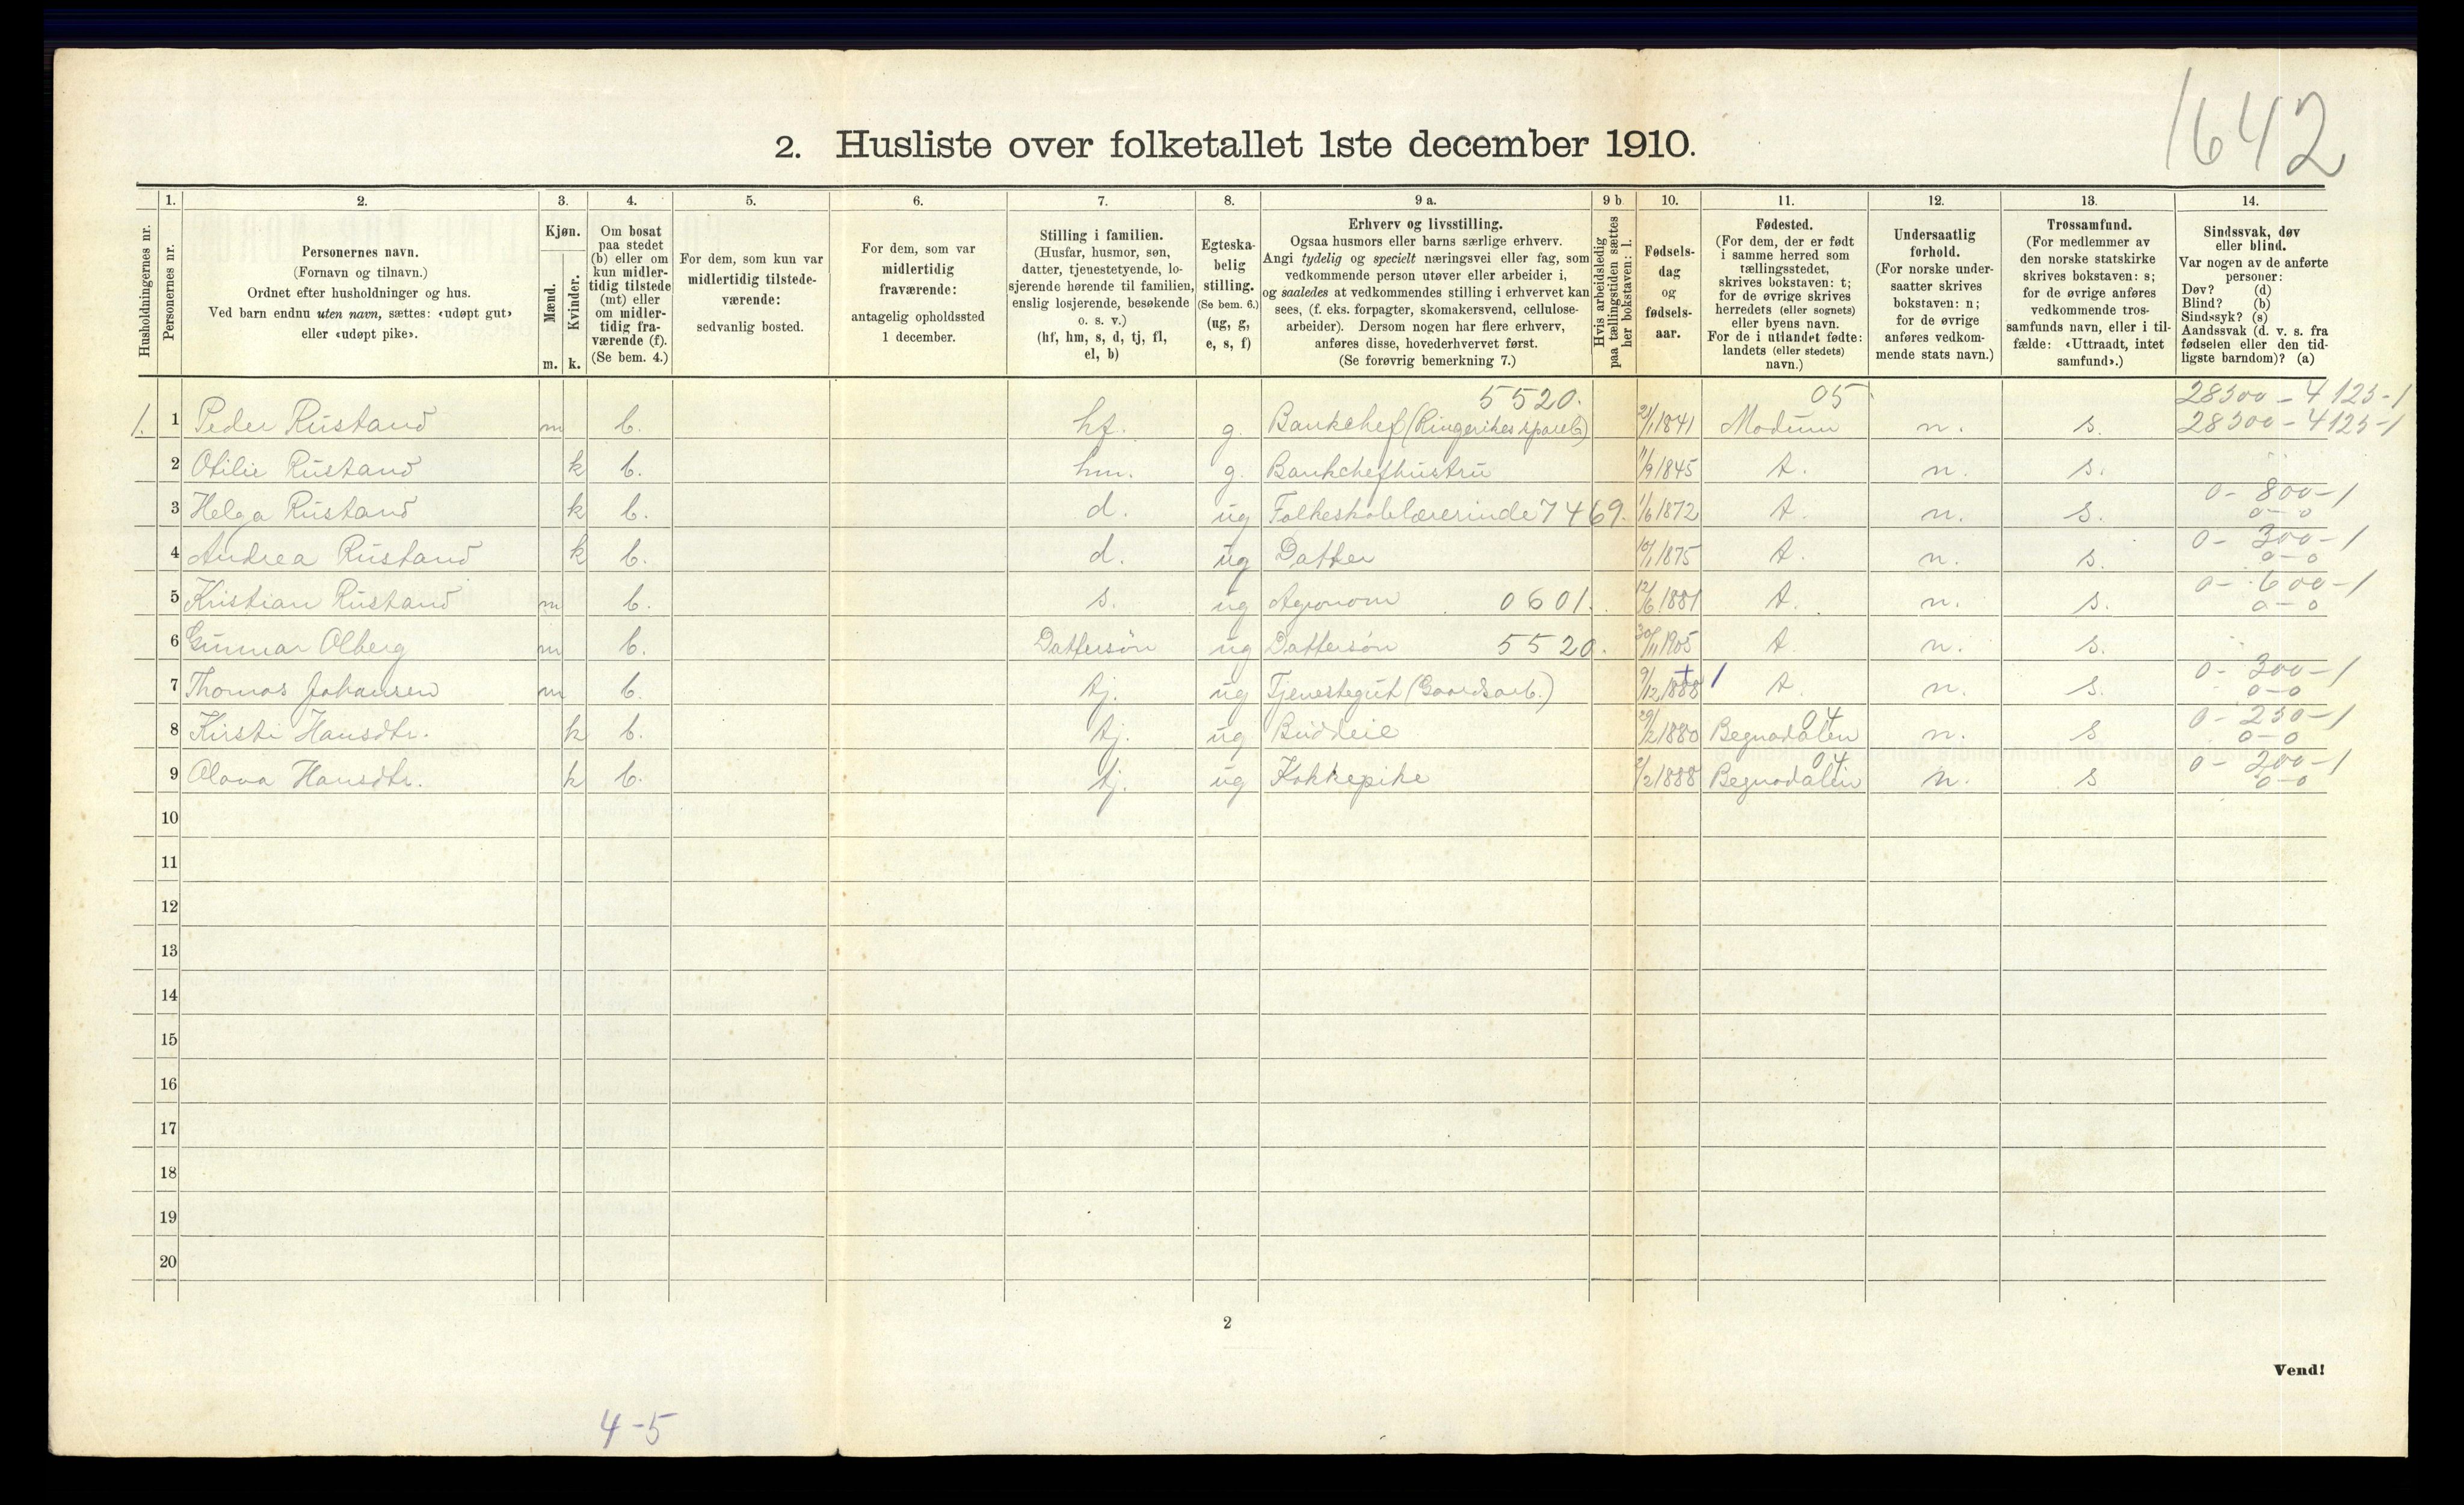 1642
2. Husliste over folketallet 1ste december 1910.
1. 2. 3. 4. 5. 6. 7. 8. 9 a. 9 b 10. 11. 12. 13. 14.
Husholdningernes nr.
Personernes nr.
Personernes navn.
(Fornavn og tilnavn.)
Ordnet efter husholdninger og hus.
Ved barn endnu uten navn, sættes: «udøpt gut»
eller «udøpt pike».
Kjøn.
Mænd.
Kvinder.
m. k.
Om bosat
paa stedet
(b) eller om
kun midler-
tidig tilstede
(mt) eller
om midler-
tidig fra-
værende (f).
(Se bem. 4.)
For dem, som kun var
midlertidig tilstede-
værende:
sedvanlig bosted.
For dem, som var
midlertidig
fraværende:
antagelig opholdssted
1 december.
Stilling i familien.
(Husfar, husmor, søn,
datter, tjenestetyende, lo-
sjerende hørende til familien,
enslig losjerende, besøkende
o. s. v.)
(hf, hm, s, d, tj, fl,
el, b)
Egteska-
belig
stilling.
(Se bem. 6.)
(ug, g,
e, s, f)
Erhverv og livsstilling.
Ogsaa husmors eller barns særlige erhverv.
Angi tydelig og specielt næringsvei eller fag, som
vedkommende person utøver eller arbeider i,
og saaledes at vedkommendes stilling i erhvervet kan
sees, (f. eks. forpagter, skomakersvend, cellulose-
arbeider). Dersom nogen har flere erhverv,
anføres disse, hovederhvervet først.
(Se forøvrig bemerkning 7.)
Hvis arbeidsledig
paa tællingstiden sættes
her bokstaven: l.
Fødsels-
dag
og
fødsels-
aar.
Fødested.
(For dem, der er født
i samme herred som
tællingsstedet,
skrives bokstaven: t;
for de øvrige skrives
herredets (eller sognets)
eller byens navn.
For de i utlandet fødte:
landets (eller stedets)
navn.)
Undersaatlig
forhold.
(For norske under-
saatter skrives
bokstaven: n;
for de øvrige
anføres vedkom-
mende stats navn.)
Trossamfund.
(For medlemmer av
den norske statskirke
skrives bokstaven: s;
for de øvrige anføres
vedkommende tros-
samfunds navn, eller i til-
fælde: «Uttraadt, intet
samfund».)
Sindssvak, døv
eller blind.
Var nogen av de anførte
personer:
Døv? (d)
Blind? (b)
Sindssyk? (s)
Aandssvak (d. v. s. fra
fødselen eller den tid-
ligste barndom)? (a)
5520. 05 28300 - 4125-1
1. 1 Peder Rustand m b. hf. g. Bankchef (Ringerikes spareb) 1841 Modum n. s. 28300 - 4125-1
2 Otilie Rustand k b. hm. g. Bankchefhustru 11/9 1845 t. n. s.
0 - 800 - 1
3 Helga Rustand k b. d. ug Folkeskolelærerinde 7469. 1/6 1872 t. n. s. 0 - 0
0 - 300 - 1
4 Andrea Rustand k b. d. ug Datter 10/1 1875 t. n. s. 0 - 0
0 - 600 - 1
5 Kristian Rustand m b. s. ug Agronom 0601. 12/6 1881 t. n. s. 0 - 0
6 Gunnar Olberg m b. Dattersøn ug Dattersøn 5520. 30/11 1905 t. n. s.
0 - 300 - 1
7 Thomas Johansen m b. tj. ug Tjenestegut (Gaardsarb.) 9/12 1888 + 1 t. n. s. 0 - 0
04 0 - 230 - 1
8 Kirsti Hansdtr. k b. tj. ug Budeie 29/2 1880 Begnadalen n. s 0 - 0
04 0 - 200 - 1
9 Olava Hansdtr. k b. tj. ug Kokkepike 2/2 1888 Begnadalen n. s 0 - 0
10
11
12
13
14
15
16
17
18
19
20
2
Vend!
4-5